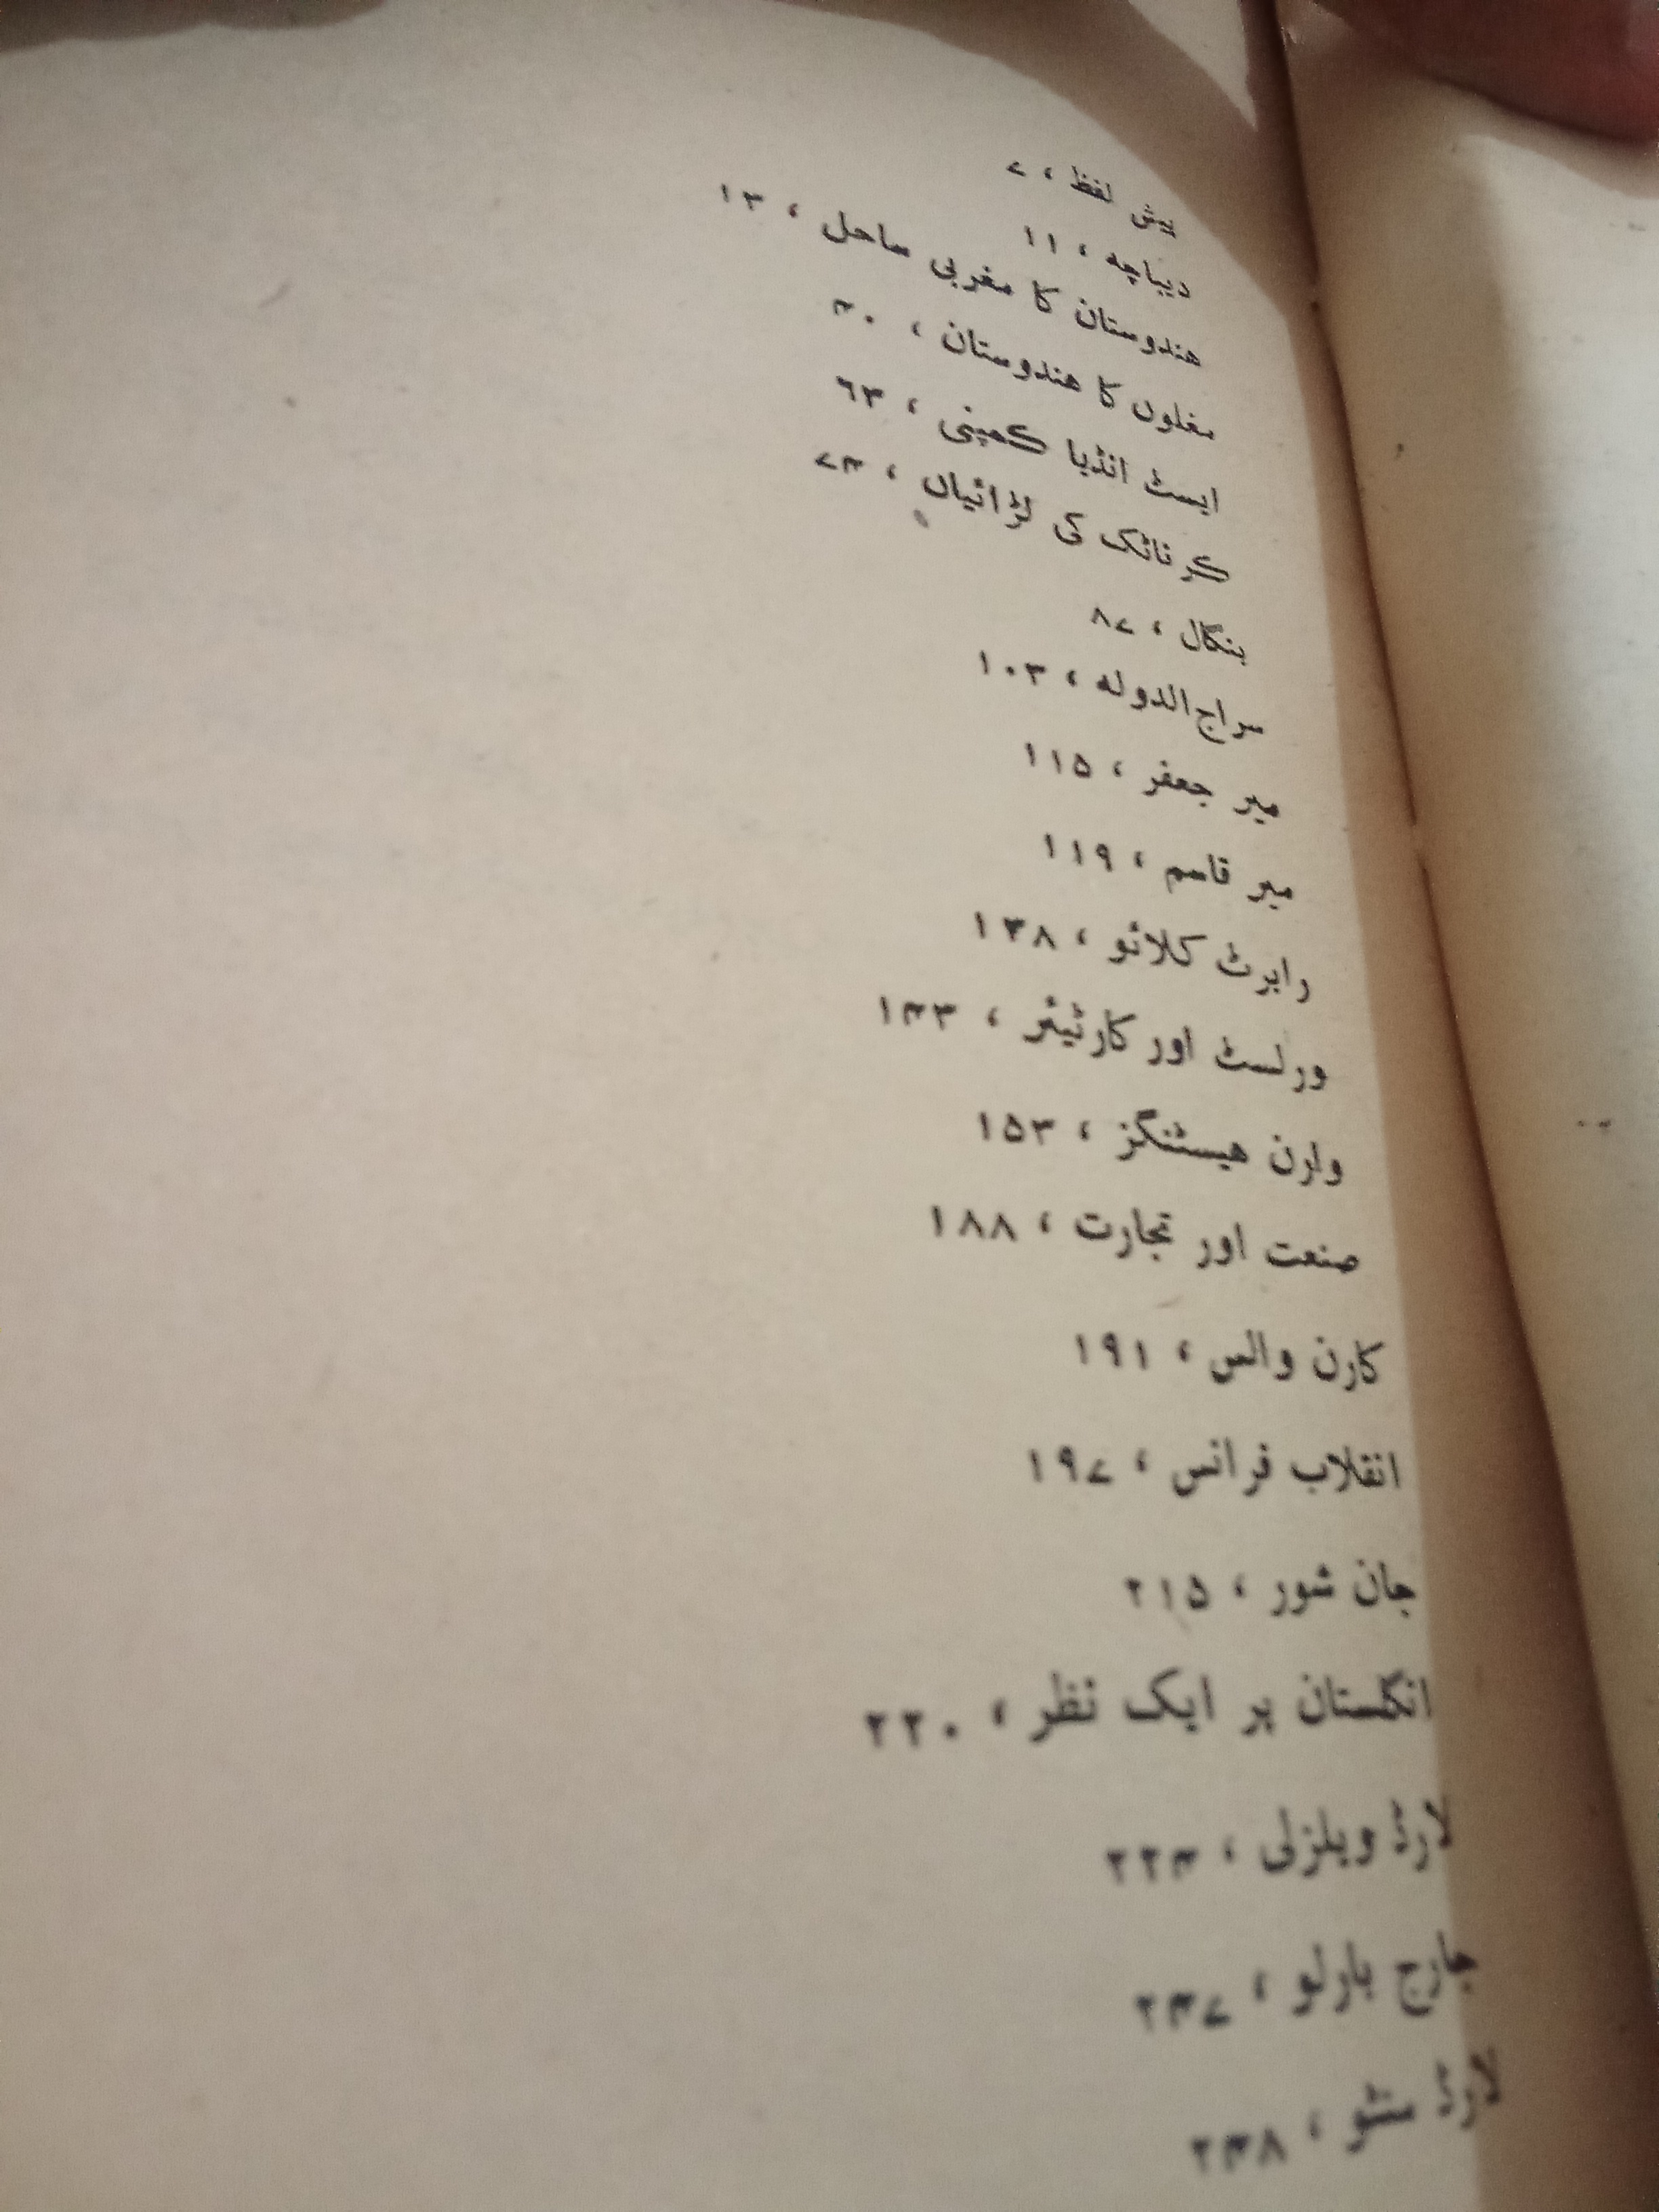 پیش لفظ ، ۷
دیباچه ، ۱۱
هندوستان کا مغربی ساحل ، ۱۳
مغلوں کا هندوستان ، ۴۰
ایسٹ انڈیا کمپنی ، ۶۳
کرناٹک کی لڑائیاں ، ۷۴
بنگال ، ۸۷
سراج الدوله ، ۱۰۳
میر جعفر ، ۱۱۵
میر قاسم ، ۱۱۹
رابرٹ کلائو ، ۱۳۸
ورلسٹ اور کارٹیئر ، ۱۴۳
وارن هیسٹنگز ، ۱۵۳
صنعت اور تجارت ، ۱۸۸
کارن والس ، ۱۹۱
انقلاب فرانس ، ۱۹۷
جان شور ، ۲۱۵
انگلستان پر ایک نظر ، ۲۲۰
لارڈ ویلزلی ، ۲۲۴
جارج بارلو ، ۲۴۷
لارڈ منٹو ، ۲۴۸